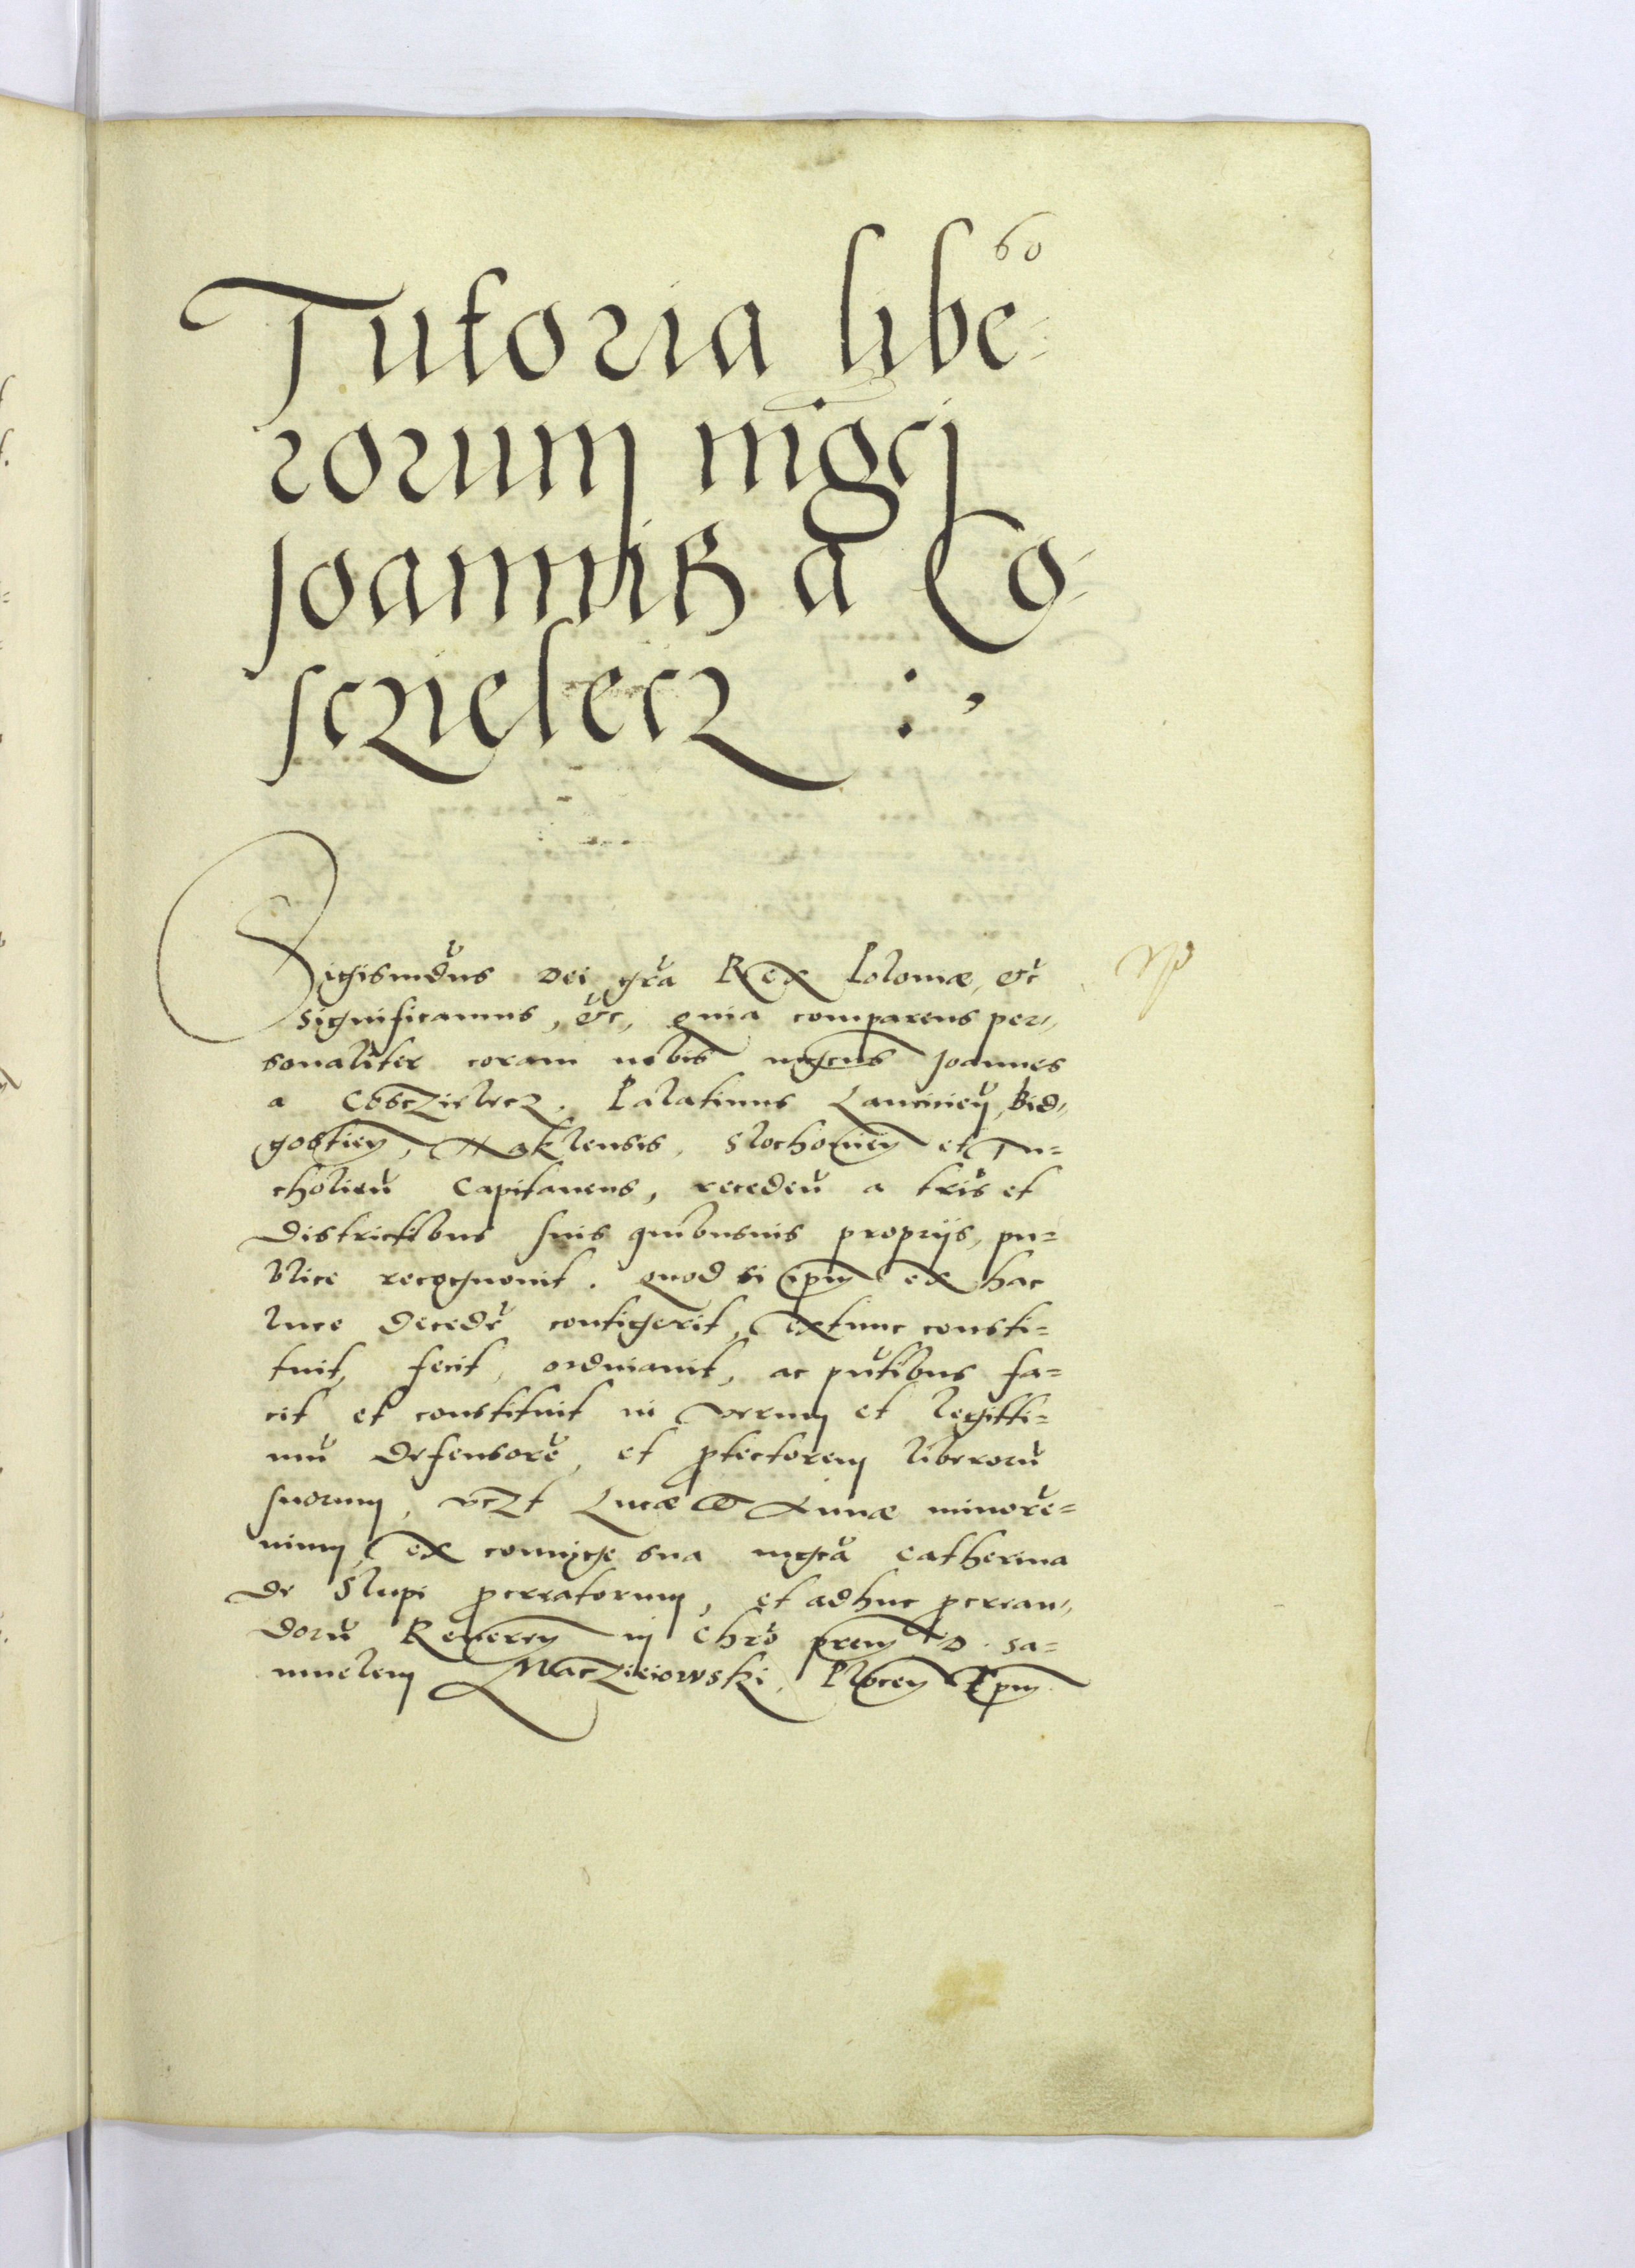 60
Tutoria libe-
rorum mgci
Joannis a Co-
sczielecz :,
Sigismūdus Dei gr̃a Rex Poloniæ, etc̃
significamus, etc̃, quia comparens per-
sonaliter coram nobis mgcus Joannes
a Cosczielecz. Palatinus Lanciciēn, Bid-
gostien, Naklensis, Slochouien et Tu-
choliēn Capitaneus, recedeñ a tr̃is et
districtibus suis quibusuis propriis, pu-
blice recognouit. quod si ip̃m ex hac
luce decedẽ contigerit, extunc consti-
tuit, fecit, ordinauit, ac pñtibus fa-
cit et constituit in verum et legitti-
mũ defensorẽ, et ptectorem liberorũ
suorum, vczt Lucæ et Annæ minorẽ-
nium, ex coniuge sua mgcã Catherina
de Slupi pcreatorum, et adhuc pcrean-
dorũ Reueren in Chrõ prem D. Sa-
muelem Maczieiowski, Plocen Epm